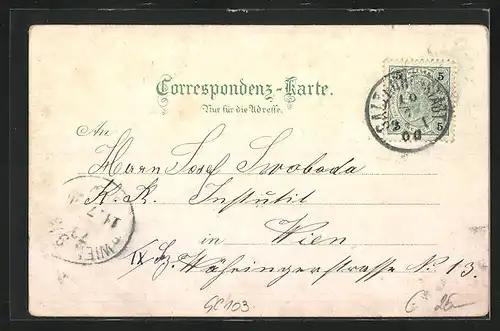 Correspondenz-Karte.
Nur für die Adresse.
5 5
SALZBURG STADT
00
An
Herrn Josef Swoboda
K. K. Institut
in Wien
IX. Bz. Währingerstrasse No 13.
WIEN
SC103
25